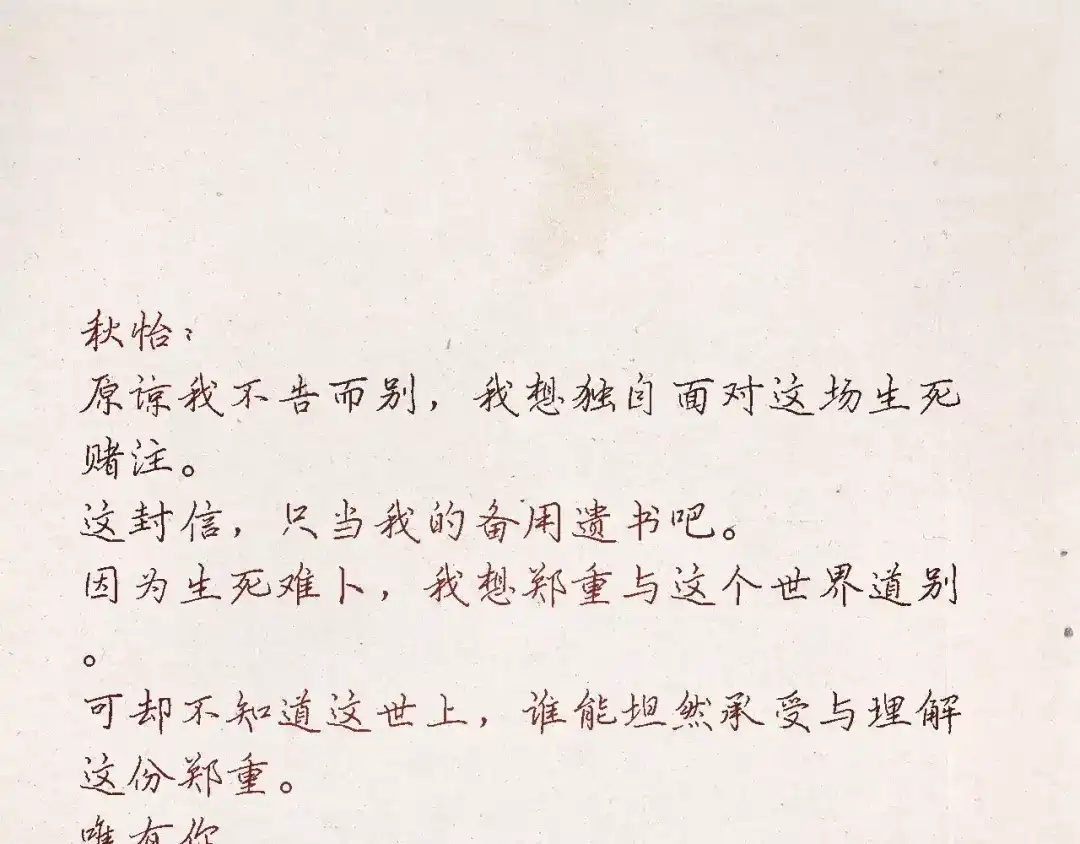 秋怡：
原谅我不告而别，我想独自面对这场生死
赌注。
这封信，只当我的备用遗书吧。
因为生死难卜，我想郑重与这个世界道别
。
可却不知道这世上，谁能坦然承受与理解
这份郑重。
唯有你